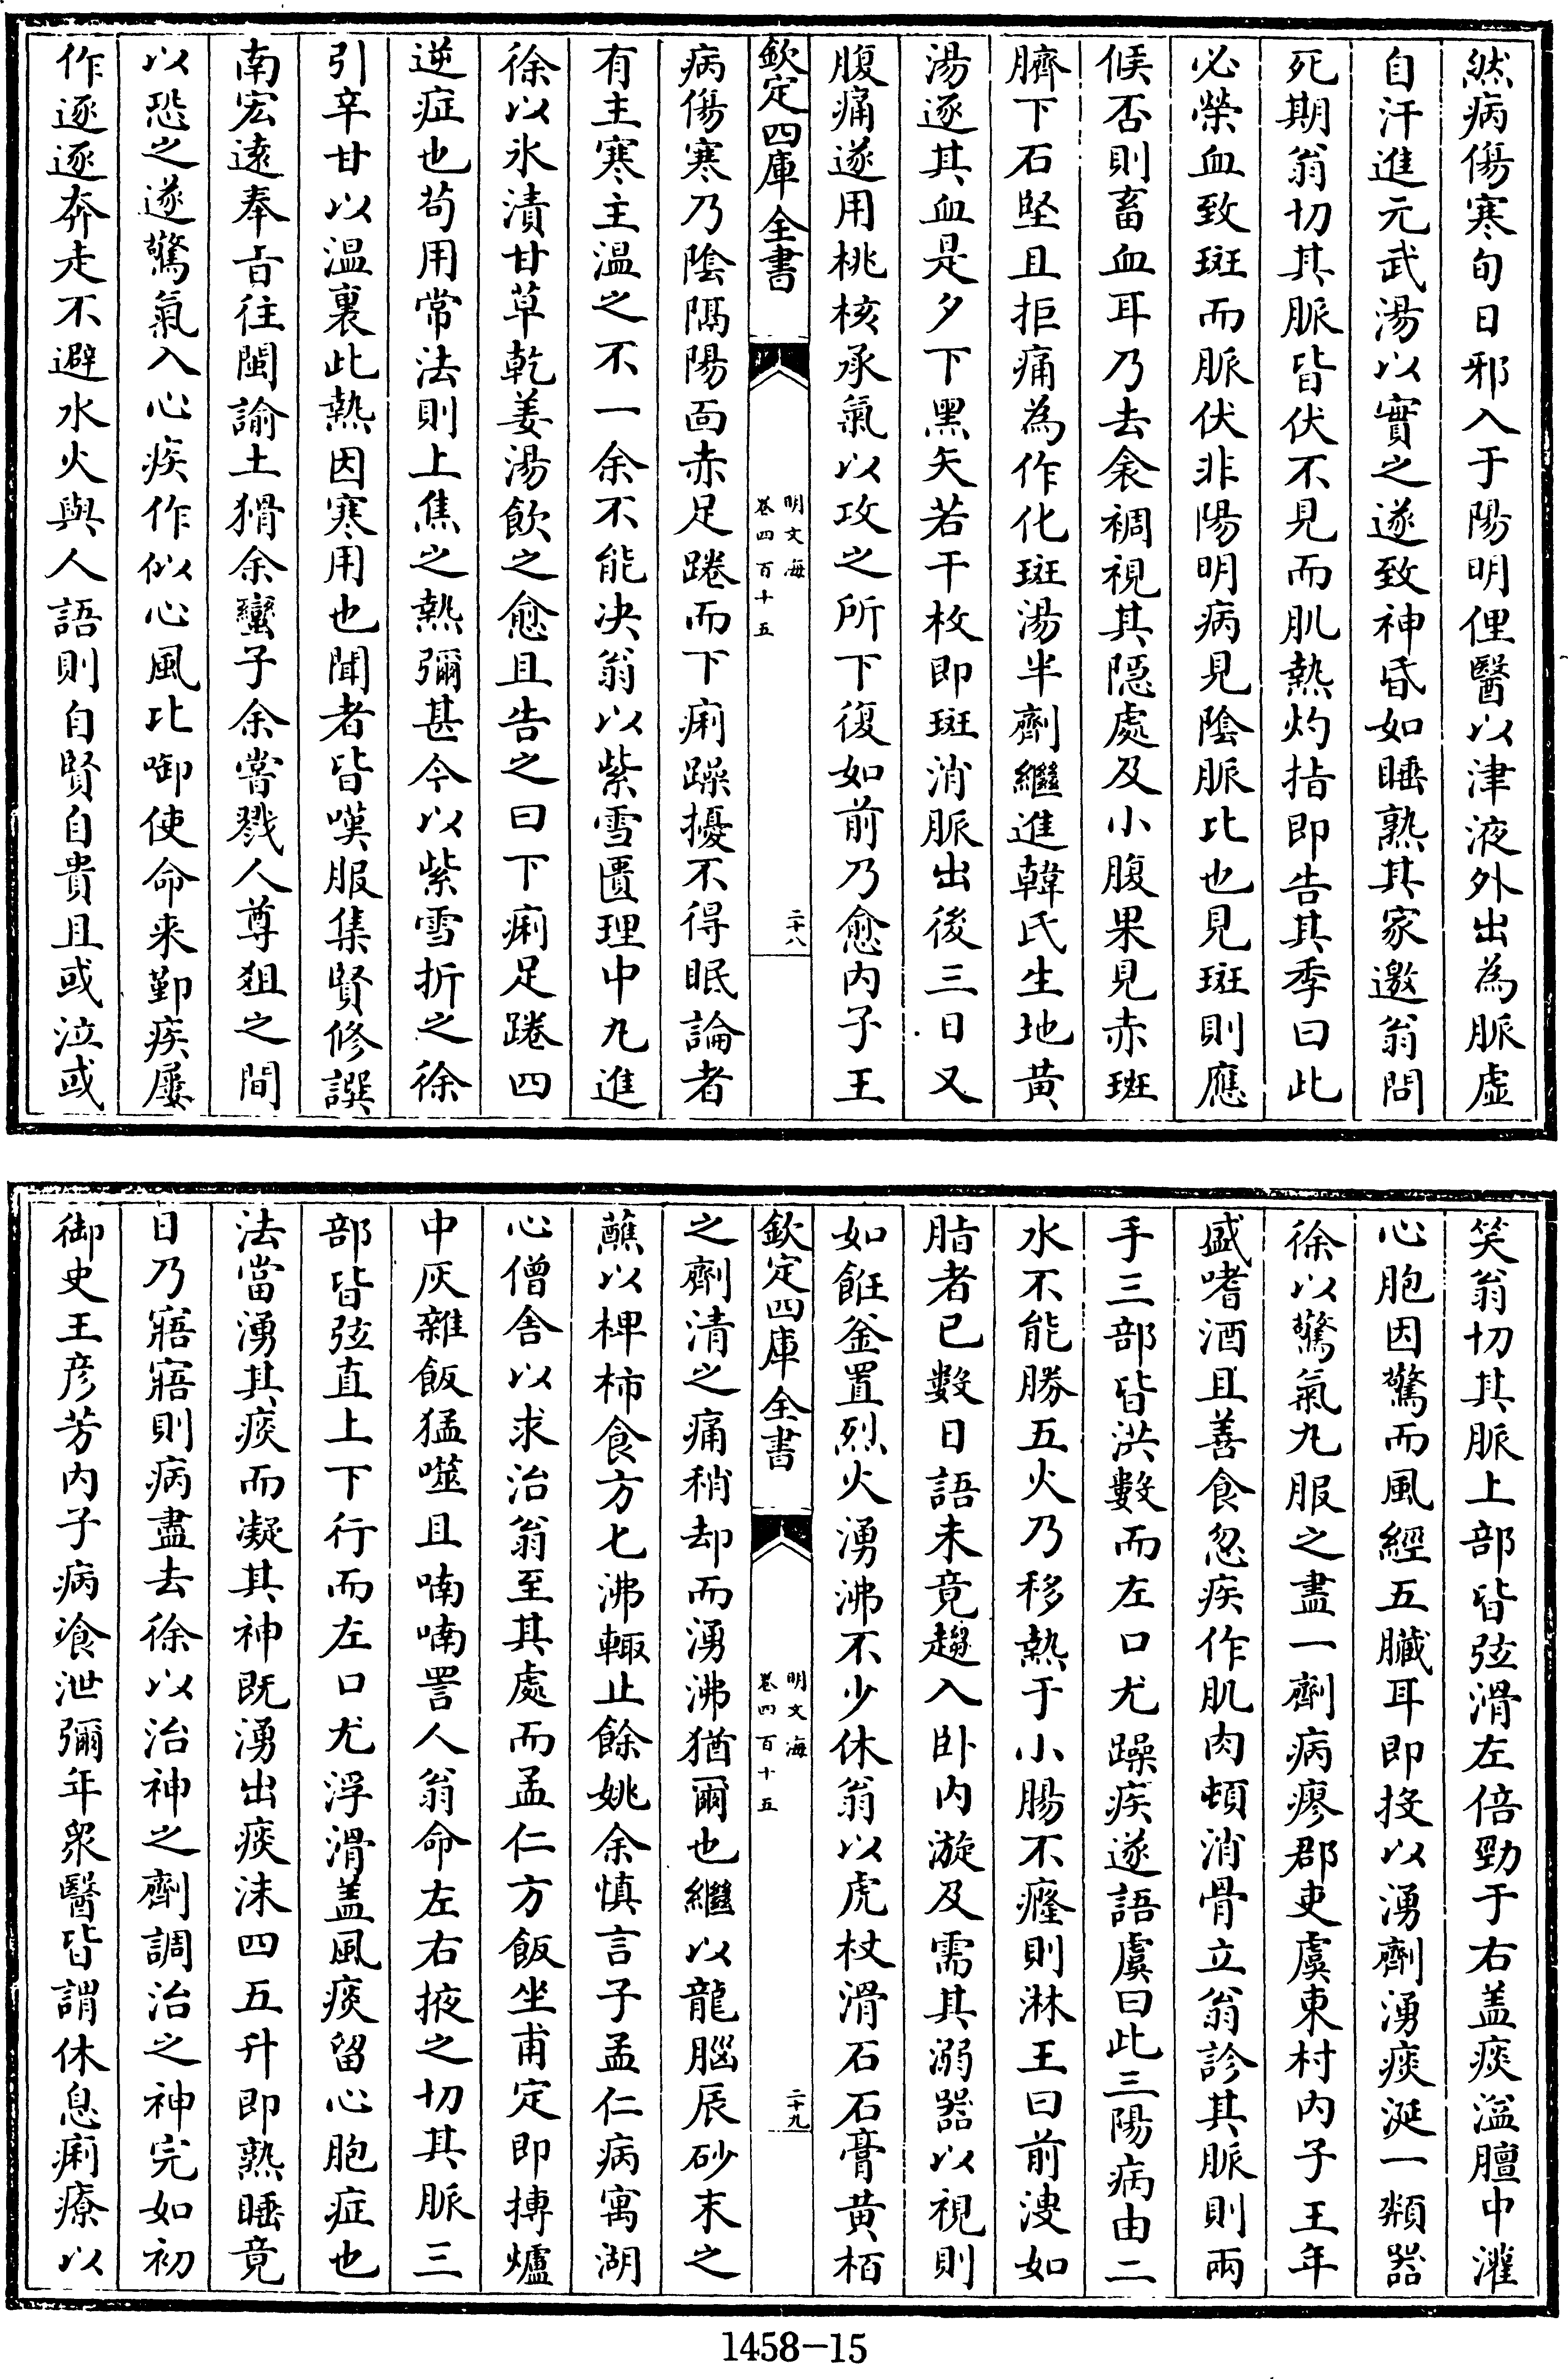 然病傷寒旬日邪入于陽明俚醫以津液外出為脈虛
自汗進元武湯以實之遂致神昏如睡熟其家邀翁問
死期翁切其脈皆伏不見而肌熱灼指即告其季曰此
必榮血致斑而脈伏非陽明病見陰脈比也見斑則應
候否則畜血耳乃去衾裯視其隱處及小腹果見赤斑
臍下石堅且拒痛為作化斑湯半劑繼進韓氏生地黄
湯逐其血是夕下黑矢若干枚即斑消脈出後三日又
腹痛遂用桃核承氣以攻之所下復如前乃愈内子王
欽定四庫全書
明文海
卷四百十五
二十八
病傷寒乃陰隔陽面赤足踡而下痢躁擾不得眠論者
有主寒主温之不一余不能決翁以紫雪匱理中丸進
徐以氷漬甘草乾姜湯飲之愈且告之曰下痢足踡四
逆症也苟用常法則上焦之熱彌甚今以紫雪折之徐
引辛甘以温裏此熱因寒用也聞者皆嘆服集賢修譔
南宏遠奉旨往閩諭土猾余蠻子余嘗戮人尊俎之間
以恐之遂驚氣入心疾作似心風比啣使命来勤疾屢
作逐逐奔走不避水火與人語則自賢自貴且或泣或
笑翁切其脈上部皆弦滑左倍勁于右盖痰溢膻中灌
心胞因驚而風經五臟耳即投以湧劑湧痰涎一類器
徐以驚氣丸服之盡一劑病瘳郡吏虞東村内子王年
盛嗜酒且善食忽疾作肌肉頓消骨立翁診其脈則兩
手三部皆洪數而左口尤躁疾遂語虞曰此三陽病由二
水不能勝五火乃移熱于小腸不癃則淋王曰前溲如
脂者已數日語未竟趨入卧内漩及需其溺器以視則
如飪釜置烈火湧沸不少休翁以虎杖滑石石膏黄栢
欽定四庫全書
明文海
卷四百十五
二十九
之劑清之痛稍却而湧沸猶爾也繼以龍腦辰砂末之
蘸以椑柿食方七沸輙止餘姚余慎言子孟仁病寓湖
心僧舎以求治翁至其處而孟仁方飯坐甫定即搏爐
中灰雜飯猛噬且喃喃詈人翁命左右掖之切其脈三
部皆弦直上下行而左口尤浮滑盖風痰留心胞症也
法當湧其痰而凝其神既湧出痰沫四五升即熟睡竟
日乃寤寤則病盡去徐以治神之劑調治之神完如初
御史王彦芳内子病飡泄彌年衆醫皆謂休息痢療以
1458-15